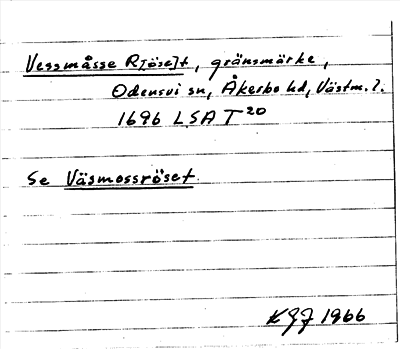 Vessmåsse R[öse]t, gränsmärke,
Odensvi sn, Åkerbo hd, Västm.l.
1696 LSA T 20
Se Väsmossröset
KGJ 1966